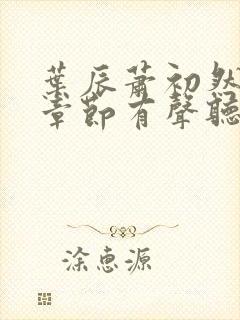 葉辰蕭初然
章節有聲聽
涂惠源